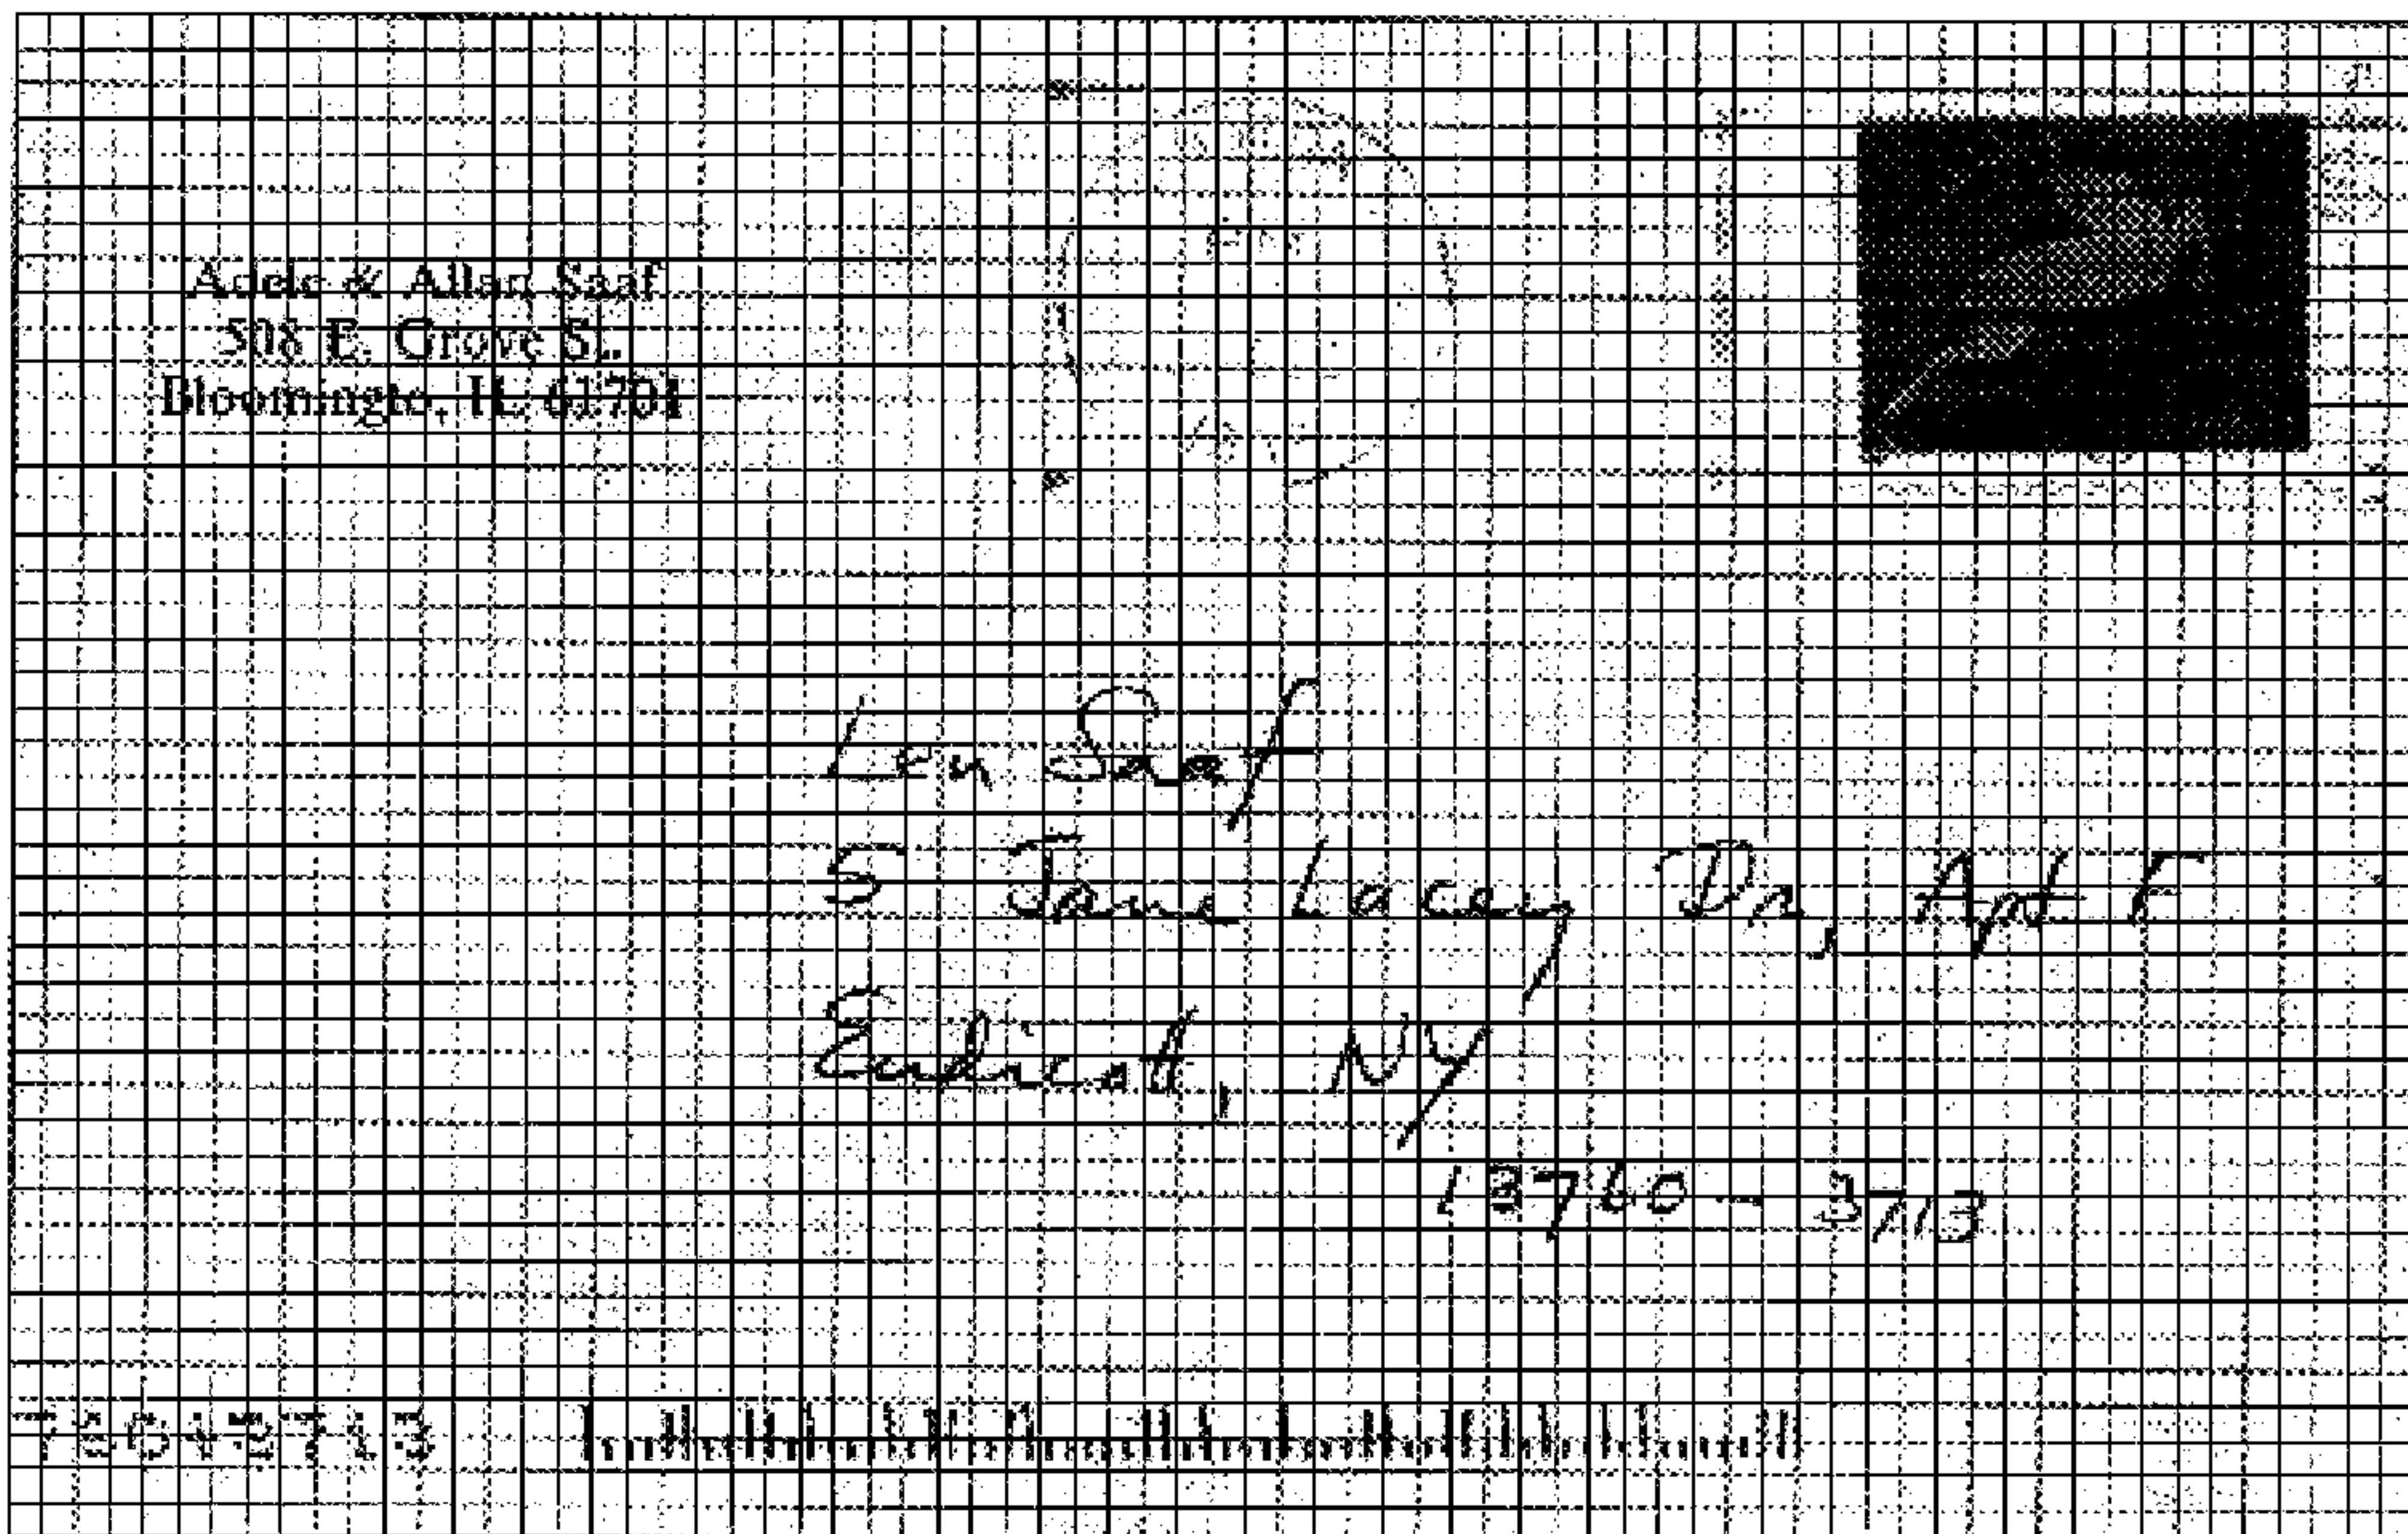 Adele & Allan Saaf
508 E. Grove St.
Bloomingto, IL 61701
Len Saaf
5 Jane Lacey Dr, Apt F
Endicott, NY
13760-3713